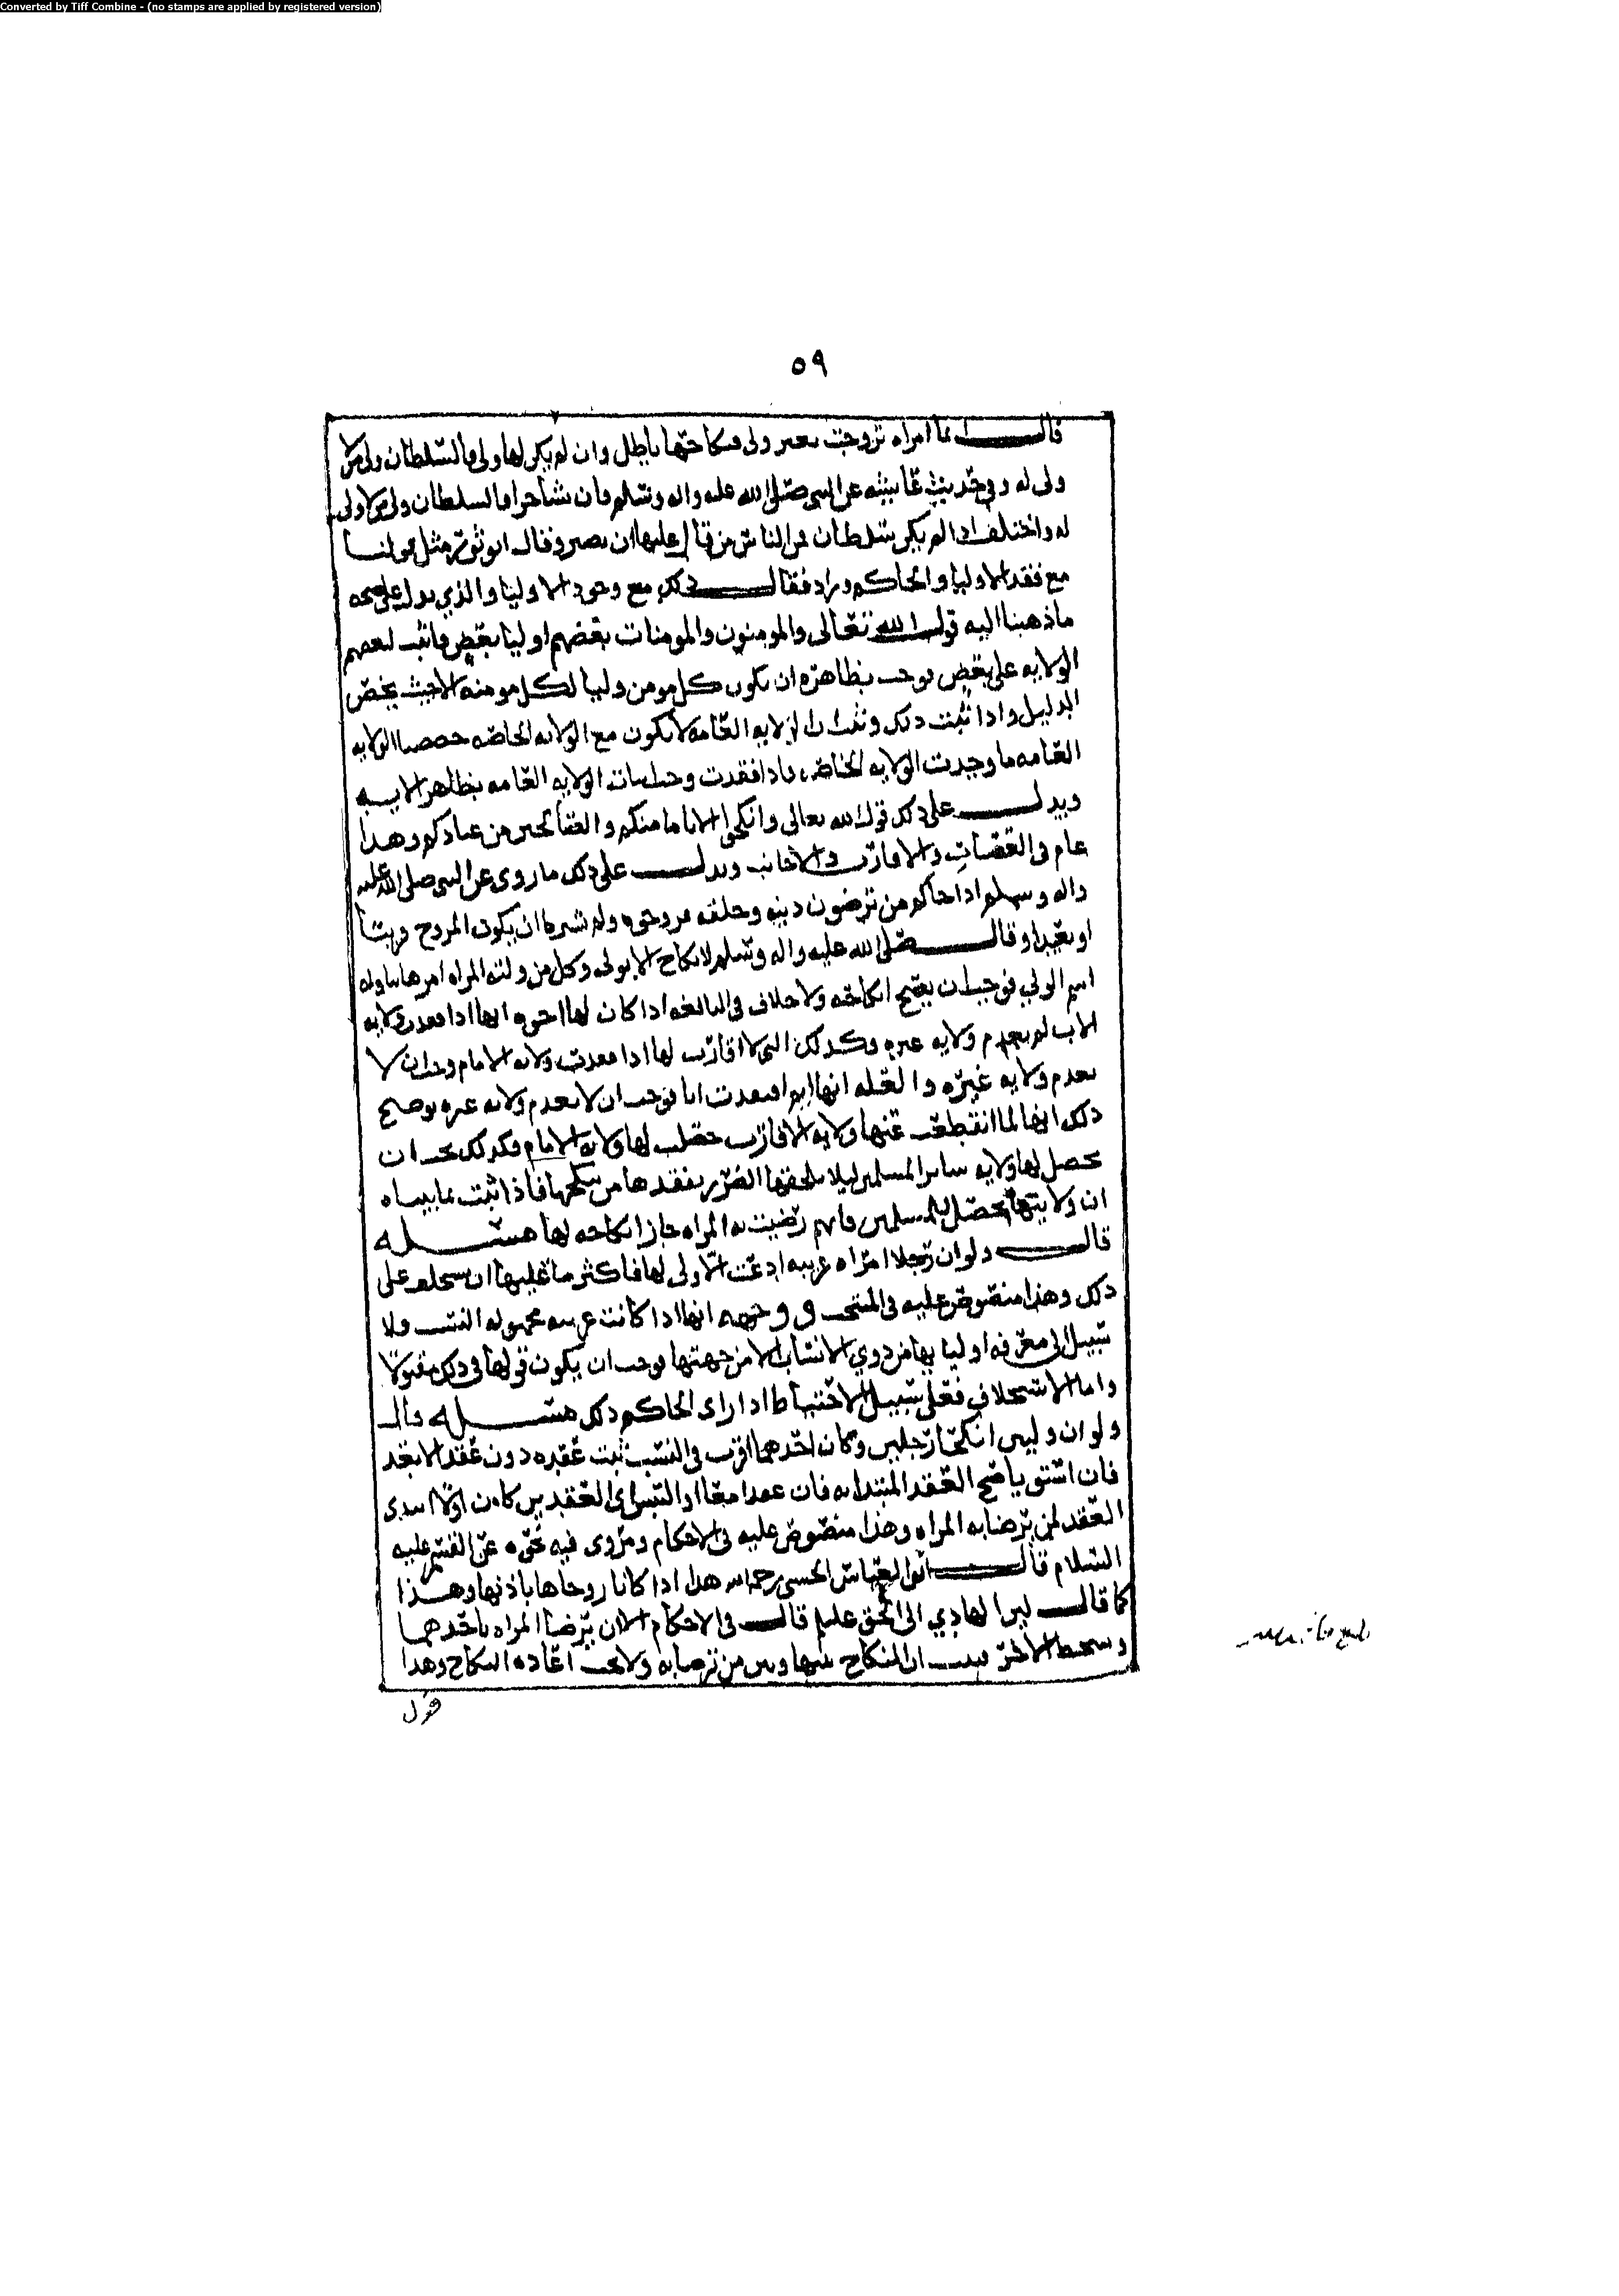 Converted by Tiff Combine - (no stamps are applied by registered version)
٥٩
قال ايما امراه تزوجت بغير ولي فنكاحها باطل وان لم يكن لها ولي فالسلطان ولي من لا
ولي له وفي حديث عايشه عن النبي صلى الله عليه واله وسلم فان تشاجرا فالسلطان ولي من لا ولي
له واختلف اذا لم يكن سلطان فمن الناس من قال عليها ان تصبر وقال ابو ثور مثل قولنا
مع فقد الاوليا والحاكم وزاد فقال ذلك مع وجود الاوليا والذي يدل على صحه
ما ذهبنا اليه قول الله تعالى والمومنون والمومنات بعضهم اوليا بعض فاثبت لبعضهم
الولايه على بعض فوجب بظاهره ان يكون كل مومن وليا لكل مومنه الا حيث يخص
الدليل واذا ثبت ذلك وثبت ان الولايه العامه لا تكون مع الولايه الخاصه خصصنا الولايه
العامه ما وجدت الولايه الخاصه فاذا فقدت وجب اثبات الولايه العامه بظاهر الايه
ويدل على ذلك قول الله تعالى وانكحوا الاياما منكم والصالحين من عبادكم وهذا
عام في العصبات والاقارب والاجانب ويدل على ذلك ما روي عن النبي صلى الله عليه
واله وسلم اذا جاكم من ترضون دينه وخلقه فزوجوه ولم يشرط ان يكون المزوج قريبا
او بعيدا وقال صلى الله عليه واله وسلم لا نكاح الا بولي وكل من ولته المراه امرها تناوله
اسم الولي فوجب ان يصح انكاحه ولا خلاف في البالغه اذا كان لها اخوه انها اذا عدمت ولايه
الاب لم تعدم ولايه غيره وكذلك التي لا اقارب لها اذا عدمت ولايه الامام وجب ان لا
تعدم ولايه غيره والعله انها ايم عدمت ابا فوجب ان لا تعدم ولايه غيره يوضح
ذلك انها لما انقطعت عنها ولايه الاقارب حصلت لها ولايه الامام وكذلك يجب ان
يحصل لها ولايه ساير المسلمين ليلا يلحقها الضرر بفقدها من ينكحها فاذا ثبت بما بيناه
ان ولايتها تحصل للمسلمين فايهم رضيت به المراه جاز انكاحه لها مسئله
قال ولو ان رجلا امراه غريبه ادعت الا ولي لها فاكثر ما عليها ان تستحلف على
ذلك وهذا منصوص عليه في المنتخب ووجهه انها اذا كانت غريبه مجهوله النسب ولا
سبيل الى معرفه اوليايها من ذوي الانساب الا من جهتها فوجب ان يكون قولها في ذلك مقبولا
واما الاستحلاف فعلى سبيل الاحتياط اذا راى الحاكم ذلك مسئله قال
ولو ان وليين انكحا رجلين وكان احدهما اقرب في النسب ثبت عقده دون عقد الابعد
فان استويا صح العقد المبتدا به فان عقدا معا او التبس اي العقدين كان اولا ابتدي
العقد لمن ترضا به المراه وهذا منصوص عليه في الاحكام ومروي فيه نحوه عن القسم عليه
السلام قال ابو العباس الحسني رحمه الله هذا اذا كانا زوجاها باذنها وهذا
كما قال لان الهادي الى الحق عليلم قال في الاحكام الا ان ترضا المراه باحدهما
وتسخط الاخر فيثبت النكاح بينها وبين من ترضا به ولا يجب اعاده النكاح وهذا
قول